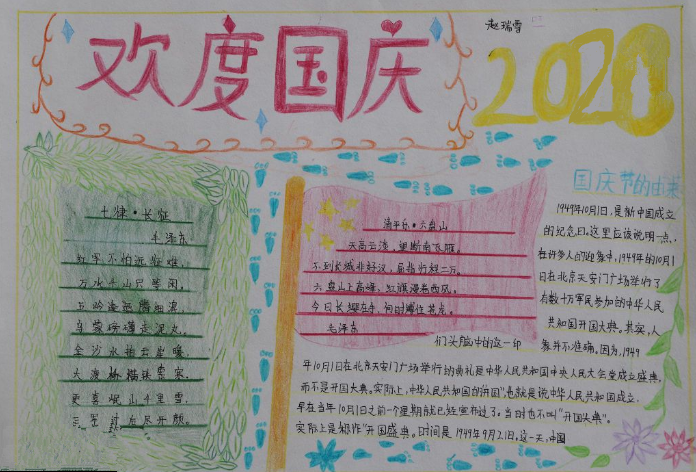 欢度国庆
赵瑞雪
2020
七律·长征
毛泽东
红军不怕远征难,
万水千山只等闲。
五岭逶迤腾细浪,
乌蒙磅礴走泥丸。
金沙水拍云崖暖,
大渡桥横铁索寒。
更喜岷山千里雪,
三军过后尽开颜。
清平乐·六盘山
天高云淡,望断南飞雁。
不到长城非好汉,屈指行程二万。
六盘山上高峰,红旗漫卷西风。
今日长缨在手,何时缚住苍龙。
毛泽东
国庆节的由来
1949年10月1日,是新中国成立
的纪念日。这里应该说明一点,
在许多人的印象中,1949年的10月1
日在北京天安门广场举行了
有数十万军民参加的中华人民
共和国开国大典。其实,人
们头脑中的这一印
象并不准确。因为,1949
年10月1日在北京天安门广场举行的典礼是中华人民共和国中央人民大会堂成立盛典,
而不是开国大典。实际上,中华人民共和国的"开国"也就是说中华人民共和国成立,
早在当年10月1日之前一个星期就已经宣布过了。当时也不叫"开国大典"。
实际上是都作"开国盛典。时间是1949年9月21日。这一天,中国